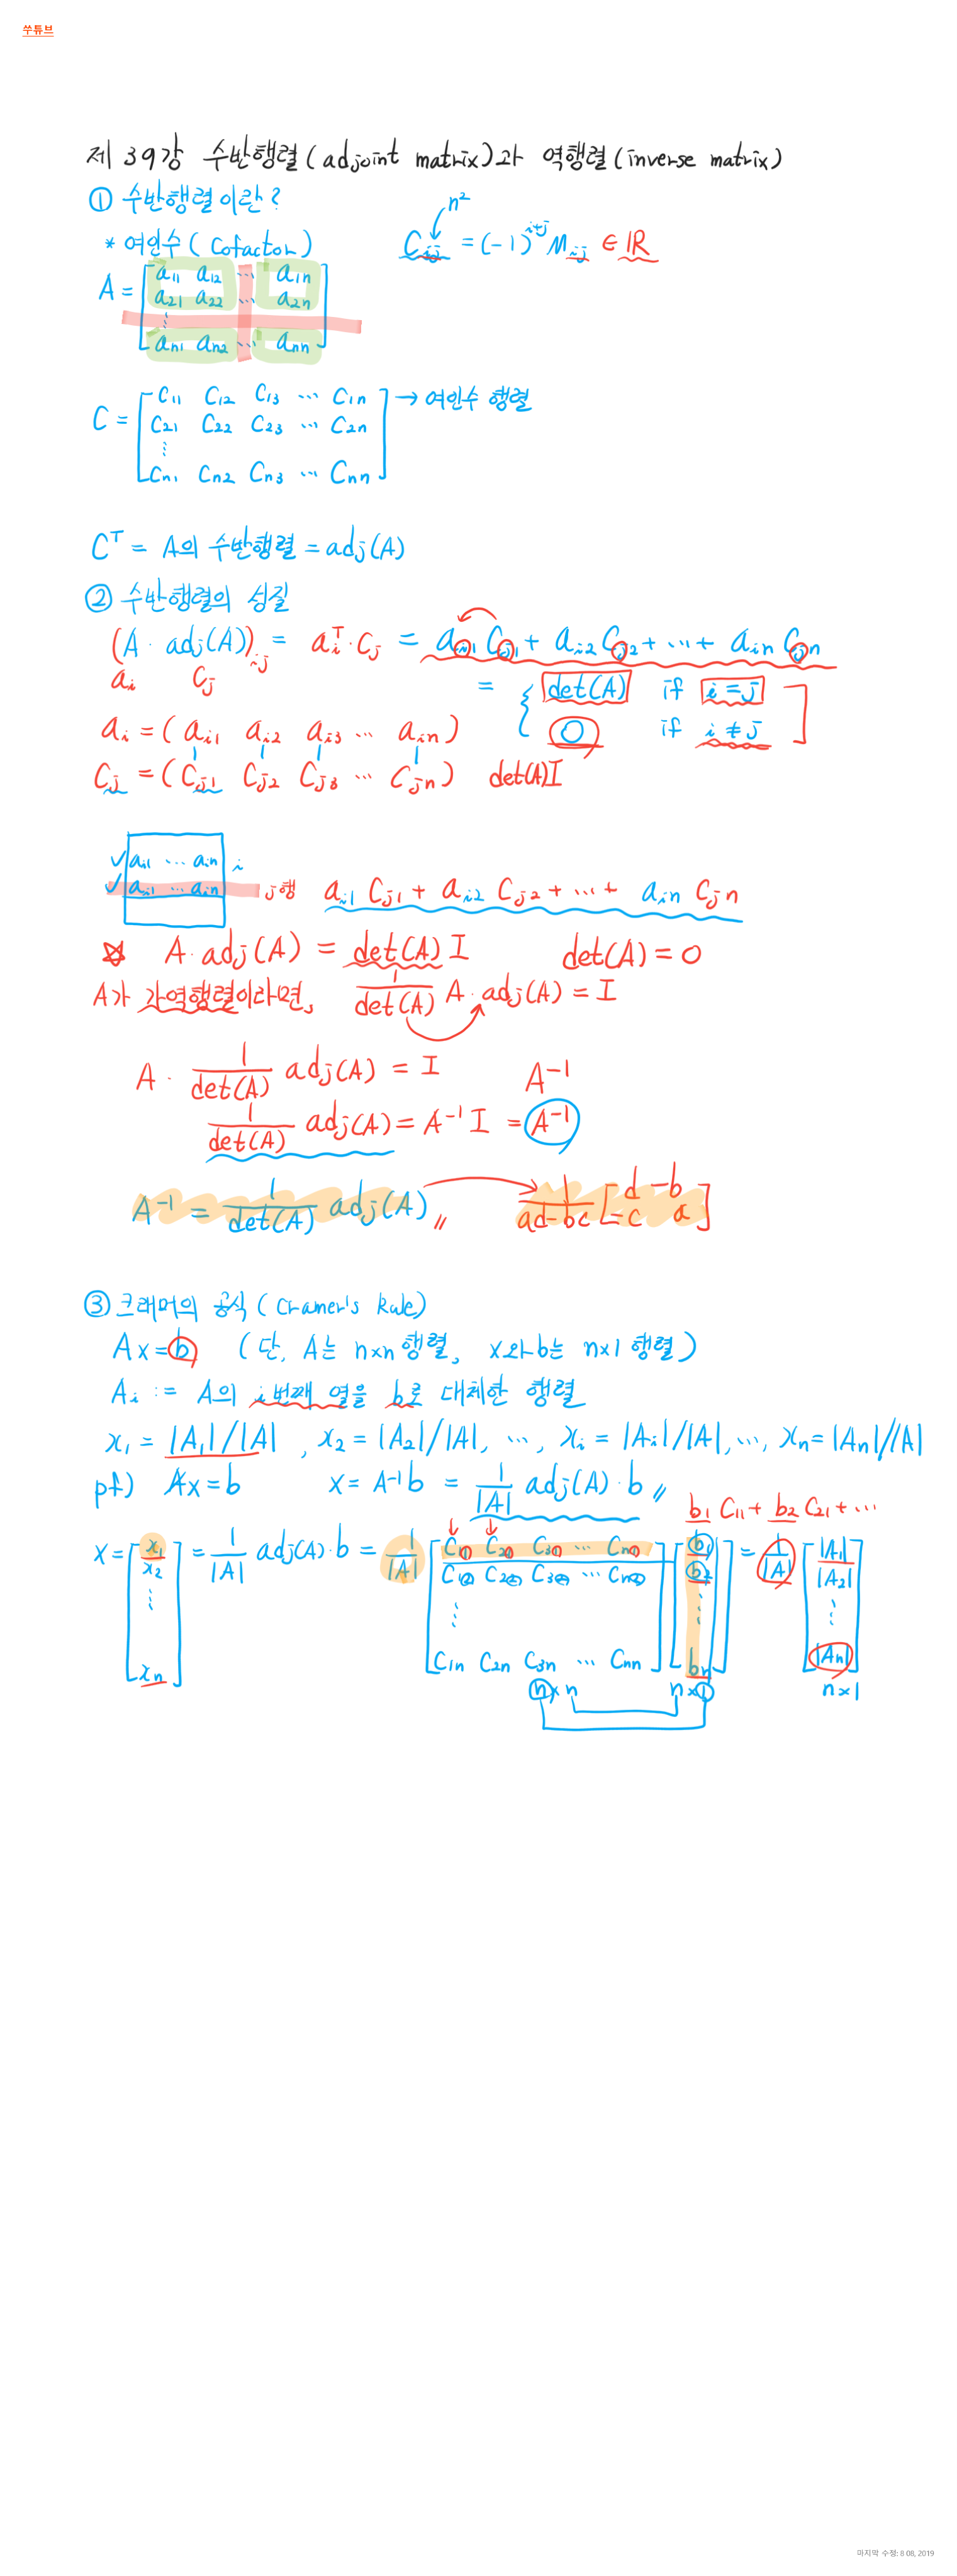 쑤튜브
제 39강 수반행렬(adjoint matrix)과 역행렬(inverse matrix)
① 수반행렬이란?
n²
* 여인수(Cofactor)
C_ij = (-1)^{i+j} M_ij ∈ ℝ
A = [a11 a12 … a1n
a21 a22 … a2n
⋮
an1 an2 … ann]
C = [C11 C12 C13 … C1n
C21 C22 C23 … C2n
⋮
Cn1 Cn2 Cn3 … Cnn] → 여인수 행렬
C^T = A의 수반행렬 = adj(A)
② 수반행렬의 성질
(A · adj(A))_ij = a_i^T · C_j = a_i1 C_j1 + a_i2 C_j2 + … + a_in C_jn
a_i C_j
= { det(A) if i = j
0 if i ≠ j ]
a_i = (a_i1 a_i2 a_i3 … a_in)
C_j = (C_j1 C_j2 C_j3 … C_jn) det(A)I
✓ a_i1 … a_in i
✓ a_i1 … a_in j행 a_i1 C_j1 + a_i2 C_j2 + … + a_in C_jn
☆ A · adj(A) = det(A) I det(A) = 0
A가 가역행렬이라면, 1/det(A) A · adj(A) = I
A · 1/det(A) adj(A) = I A^-1
1/det(A) adj(A) = A^-1 I = A^-1
A^-1 = 1/det(A) adj(A) 〃 → 1/(ad-bc) [d -b
-c a]
③ 크래머의 공식(Cramer's Rule)
Ax = b (단, A는 n×n 행렬, x와 b는 n×1 행렬)
A_i := A의 i번째 열을 b로 대체한 행렬
x1 = |A1|/|A|, x2 = |A2|/|A|, …, xi = |Ai|/|A|, …, xn = |An|/|A|
pf) Ax = b x = A^-1 b = 1/|A| adj(A) · b 〃
b1 C11 + b2 C21 + …
x = [x1
x2
⋮
xn] = 1/|A| adj(A) · b = 1/|A| [C11 C21 C31 … Cn1
C12 C22 C32 … Cn2
⋮
C1n C2n C3n … Cnn] [b1
b2
⋮
bn] = 1/|A| [|A1|
|A2|
⋮
|An|]
n×n n×1 n×1
마지막 수정: 8 08, 2019